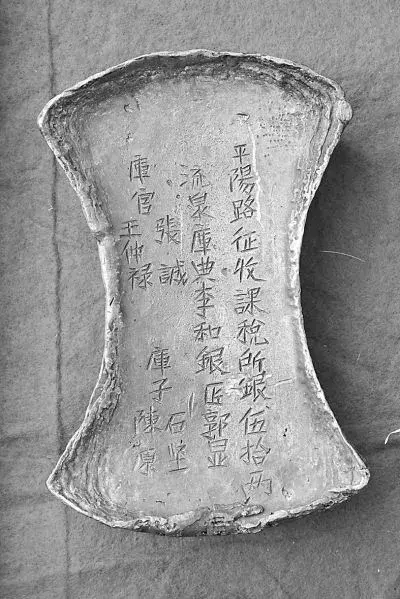 平陽路征收課稅所銀伍拾两
流泉庫典李和銀匠郭显
張誠 石坚
庫官 王仲禄 庫子 陳原